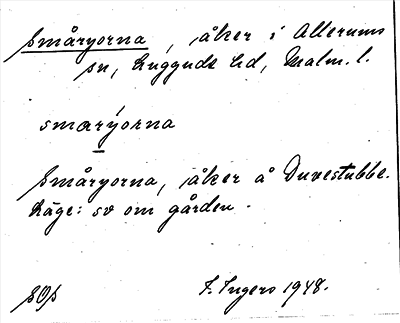 Småryorna, åker i Allerums
sn, Luggude hd, Malm. l.
smarýorna
Småryorna, åker å Duvestubbe.
Läge: sv om gården.
F. Ingers 1948.